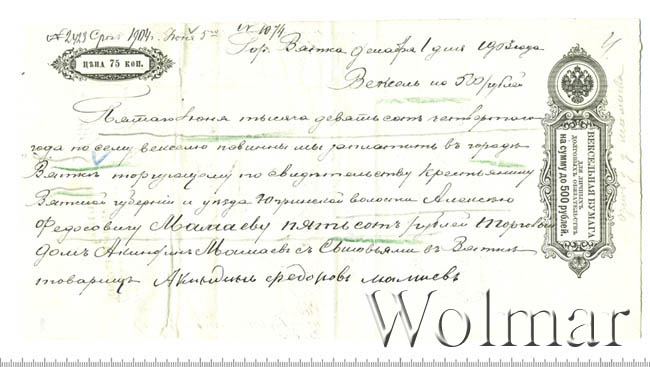 № 2423 Срокъ 1904 г. Июня 5 го
№ 1074
ЦѢНА 75 КОП.
Гор. Вятка Декабря 1 дня 1903 года
Вексель на 500 рублей
Пятаго Июня тысяча девятьсотъ четвертого
года по сему векселю повинны мы заплатить въ городѣ
Вяткѣ торгующему по свидѣтельству крестьянину
Вятской губерніи и уѣзда волости Алексѣю
Федосовичу Мамаеву пятьсотъ рублей Торговый
домъ Мамаевъ съ Сыновьями въ Вяткѣ
товарищъ Акиндинъ Федоровъ Мамаевъ
ВЕКСЕЛЬНАЯ БУМАГА
ДЛЯ ПРОЧИХЪ
ДОЛГОВЫХЪ ОБЯЗАТЕЛЬСТВЪ
на сумму до 500 рублей.
Wolmar